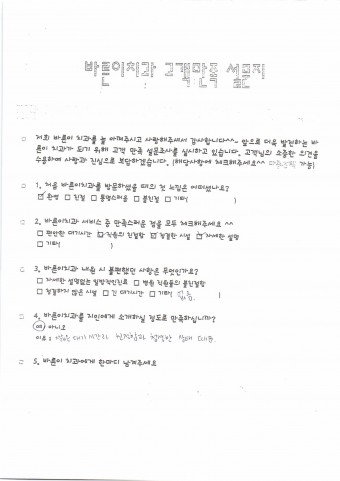 바른이치과 고객만족 설문지
저희 바른이 치과를 늘 아껴주시고 사랑해주셔서 감사합니다^^~ 앞으로 더욱 발전하는 바
른이 치과가 되기 위해 고객 만족 설문조사를 실시하고 있습니다. 고객님의 소중한 의견을
수용하여 사랑과 진심으로 보답하겠습니다. (해당사항에 체크해주세요^^ 다중선택 가능)
1. 처음 바른이치과를 방문하셨을 때의 첫 느낌은 어떠셨나요?
☑ 환영 □ 친절 □ 퉁명스러움 □ 불친절 □ 기타( )
2. 바른이치과 서비스 중 만족스러운 점을 모두 체크해주세요 ^^
□ 편안한 대기시간 ☑ 직원의 친절함 ☑ 청결한 시설 ☑ 자세한 설명
□ 기타( )
3. 바른이치과 내원 시 불편했던 사항은 무엇인가요?
□ 자세한 설명없는 일방적인진료 □ 병원 직원들의 불친절함
□ 청결하지 않은 시설 □ 긴 대기시간 □ 기타( 없음 )
4. 바른이치과를 지인에게 소개하실 정도로 만족하십니까?
예 아니오
이유: 대기시간과 친절함과 청결한 상태 때문
5. 바른이 치과에게 한마디 남겨주세요